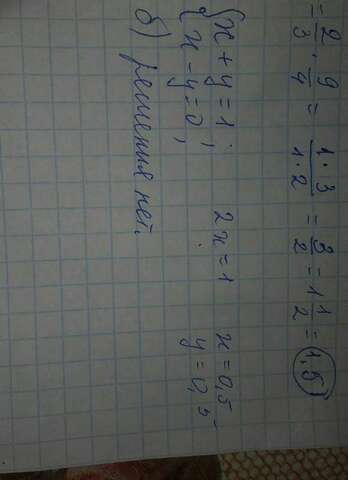 = 2/3 · 9/4 = 1·3/1·2 = 3/2 = 1 1/2 = 1,5
{ x + y = 1; 2x = 1 x = 0,5
x − y = 0; y = 0,5
б) решения нет.